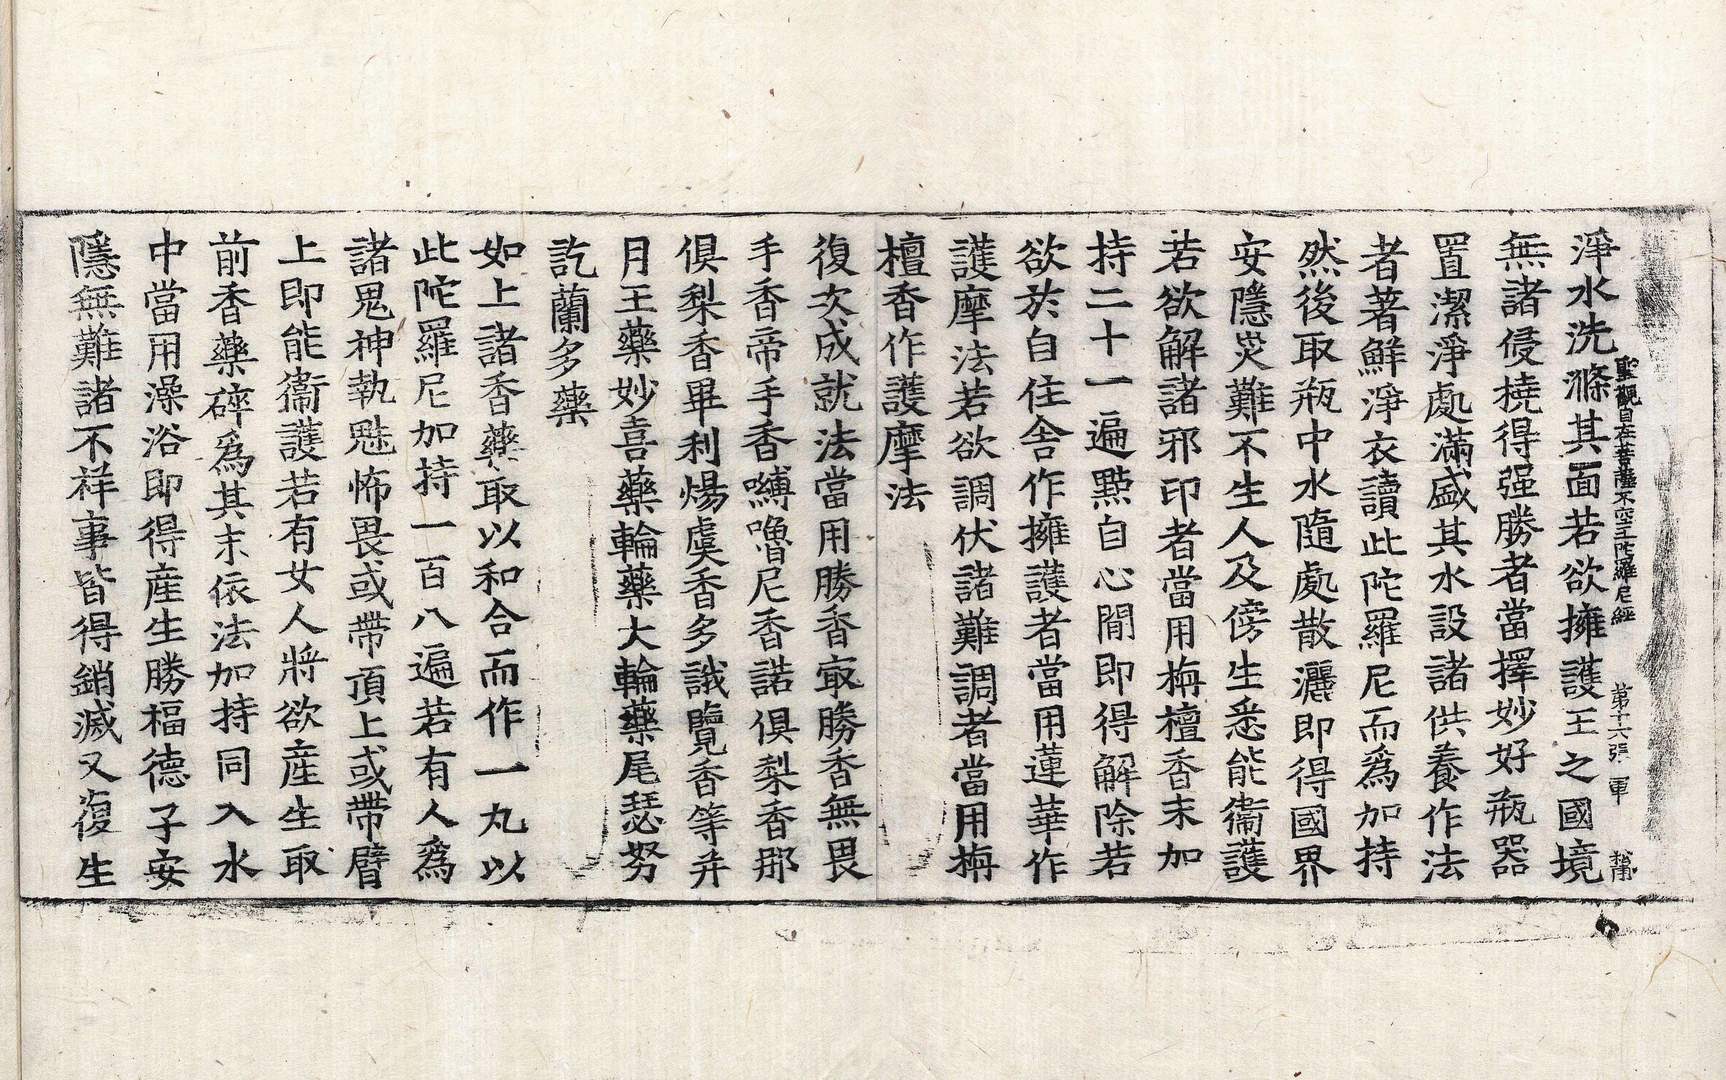 聖觀自在菩薩不空王陁羅尼經 第十六張 軍
淨水洗滌其面若欲擁護王之國境
無諸侵撓得强勝者當擇妙好瓶器
置潔淨處滿盛其水設諸供養作法
者著鮮淨衣讀此陁羅尼而爲加持
然後取瓶中水隨處散灑即得國界
安隱災難不生人及傍生悉能衞護
若欲解諸邪印者當用栴檀香末加
持二十一遍㸃自心間即得解除若
欲於自住舍作擁護者當用蓮華作
護摩法若欲調伏諸難調者當用栴
檀香作護摩法
復次成就法當用勝香㝡勝香無畏
手香帝手香嚩嚕尼香諾俱梨香那
俱梨香畢利煬虞香多誐覽香等并
月王藥妙喜藥輪藥大輪藥尾瑟努
訖蘭多藥
如上諸香藥取以和合而作一丸以
此陁羅尼加持一百八遍若有人爲
諸鬼神執魅怖畏或帶頂上或帶臂
上即能衞護若有女人將欲產生取
前香藥碎爲其末依法加持同入水
中當用澡浴即得產生勝福德子安
隱無難諸不祥事皆得銷滅又復生